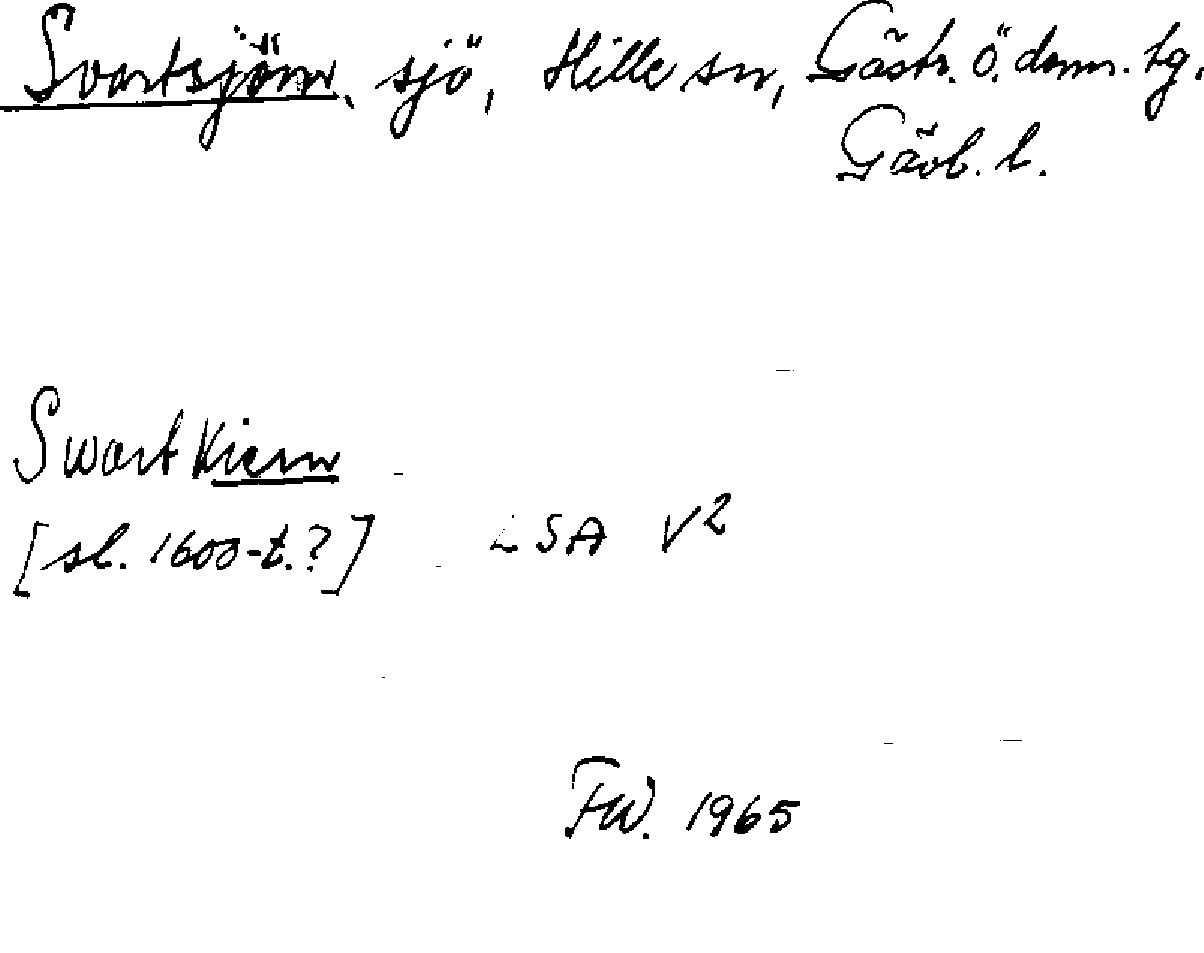 Svartsjön, sjö, Hille sn, Gästr. Ö. doms. tg.
Gävl. l.
Swart Kiern
[sl. 1600-t.?] LSA V2
FW. 1965